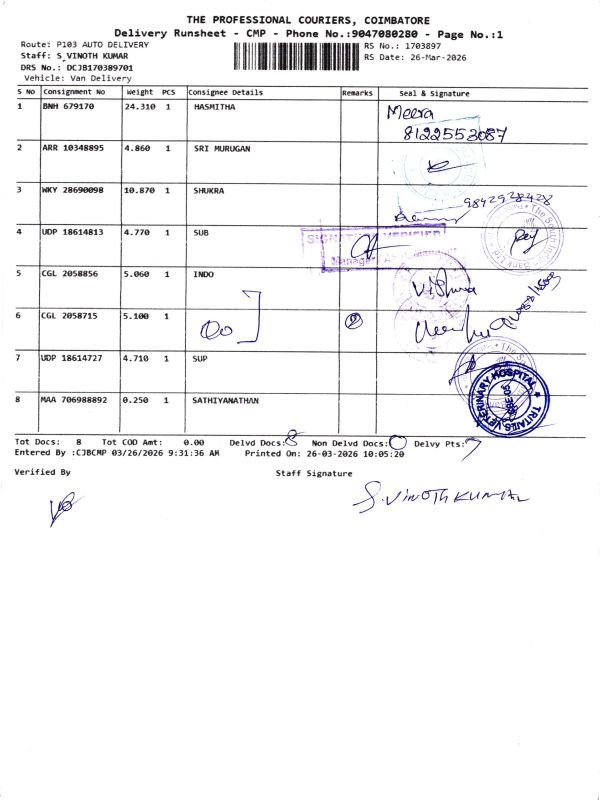 THE PROFESSIONAL COURIERS, COIMBATORE
Delivery Runsheet - CMP - Phone No.:9047080280 - Page No.:1
Route: P103 AUTO DELIVERY
RS No.: 1703897
Staff: S_VINOTH KUMAR
RS Date: 26-Mar-2026
DRS No.: DCJB170389701
Vehicle: Van Delivery
S No Consignment No Weight PCS Consignee Details Remarks Seal & Signature
1 BNH 679170 24.310 1 HASMITHA Meera
8122553087
2 ARR 10348895 4.860 1 SRI MURUGAN
3 WKY 28690098 10.870 1 SHUKRA 9842928428
4 UDP 18614813 4.770 1 SUB
SIGNATURE VERIFIED
Manager
The South Indian Bank Ltd
5 CGL 2058856 5.060 1 INDO
6 CGL 2058715 5.100 1
7 UDP 18614727 4.710 1 SUP
8 MAA 706988892 0.250 1 SATHIYANATHAN
VETERINARY HOSPITAL
Tot Docs: 8 Tot COD Amt: 0.00 Delvd Docs: 8 Non Delvd Docs: 0 Delvy Pts: 7
Entered By :CJBCMP 03/26/2026 9:31:36 AM Printed On: 26-03-2026 10:05:20
Verified By Staff Signature
S.VINOTH KUMAR